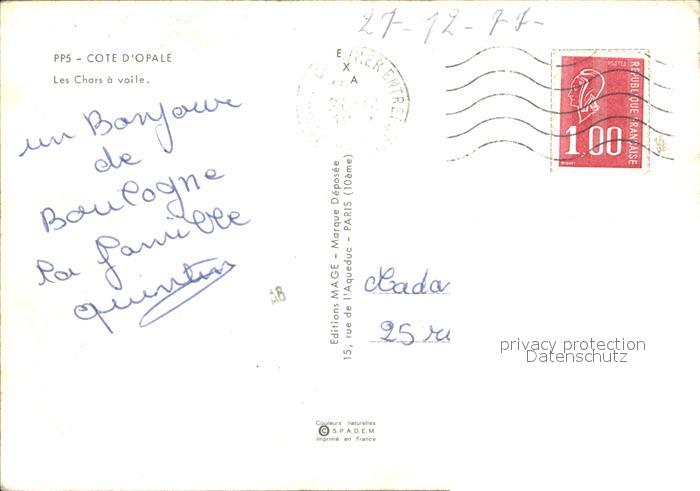 27-12-77-
PP5 - COTE D'OPALE
Les Chars à voile.
E
X
A
POSTES
REPUBLIQUE FRANÇAISE
1,00
un Bonjour
de
Boulogne
la famille
quintin
Editions MAGE - Marque Déposée
15, rue de l'Aqueduc - PARIS (10ème)
25 ru
privacy protection
Datenschutz
Couleurs naturelles
© S.P.A.D.E.M.
Imprimé en France